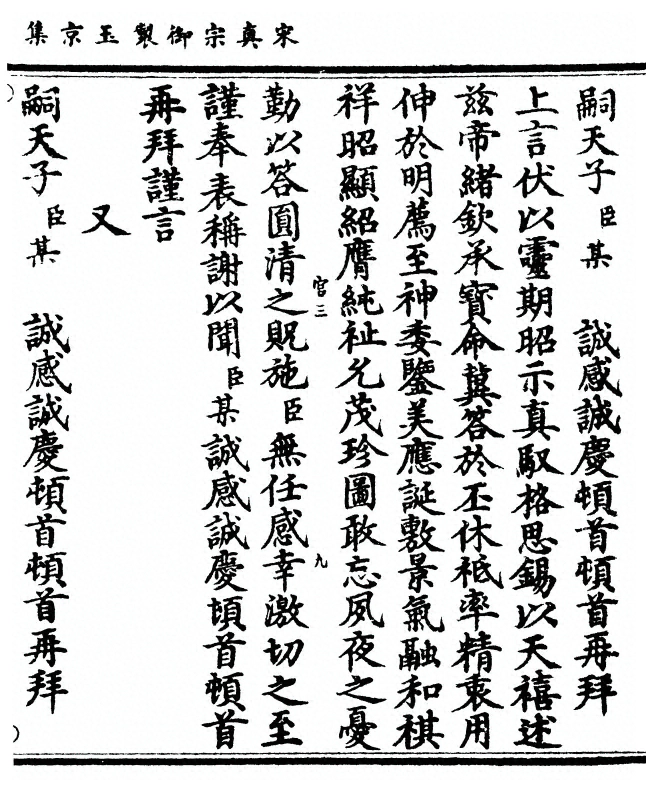 宋真宗御製玉京集
嗣天子臣某 誠感誠慶頓首頓首再拜
上言伏以靈期昭示真馭格思錫以天禧述
茲帝緒欽承寶命冀答於丕休祗率精衷用
伸於明薦至神委鑒美應誕敷景氣融和祺
祥昭顯紹膺純祉允茂珍圖敢忘夙夜之憂
官三 九
勤以答圓清之貺施臣無任感幸激切之至
謹奉表稱謝以聞臣某誠感誠慶頓首頓首
再拜謹言
又
嗣天子臣某 誠感誠慶頓首頓首再拜